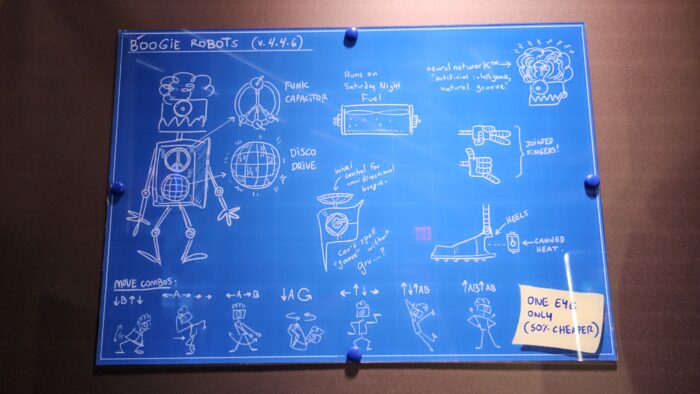 BOOGIE ROBOTS (v.4.4.6)
FUNK
CAPACITOR
DISCO
DRIVE
Runs on
Saturday Night
Fuel
neural network™
"artificial intelligence,
natural groove"
JOINTED
FINGERS!
control for
omnidirectional
boogie.
can't spell
"groove" without
gru...?
HEELS
CANNED
HEAT.
MOVE COMBOS:
↓B↑↓
←A→→→
←A→B
↓AG
←↑↓→
↑↓↑AB
↑AB↑AB
ONE EYE
ONLY
(50% CHEAPER)